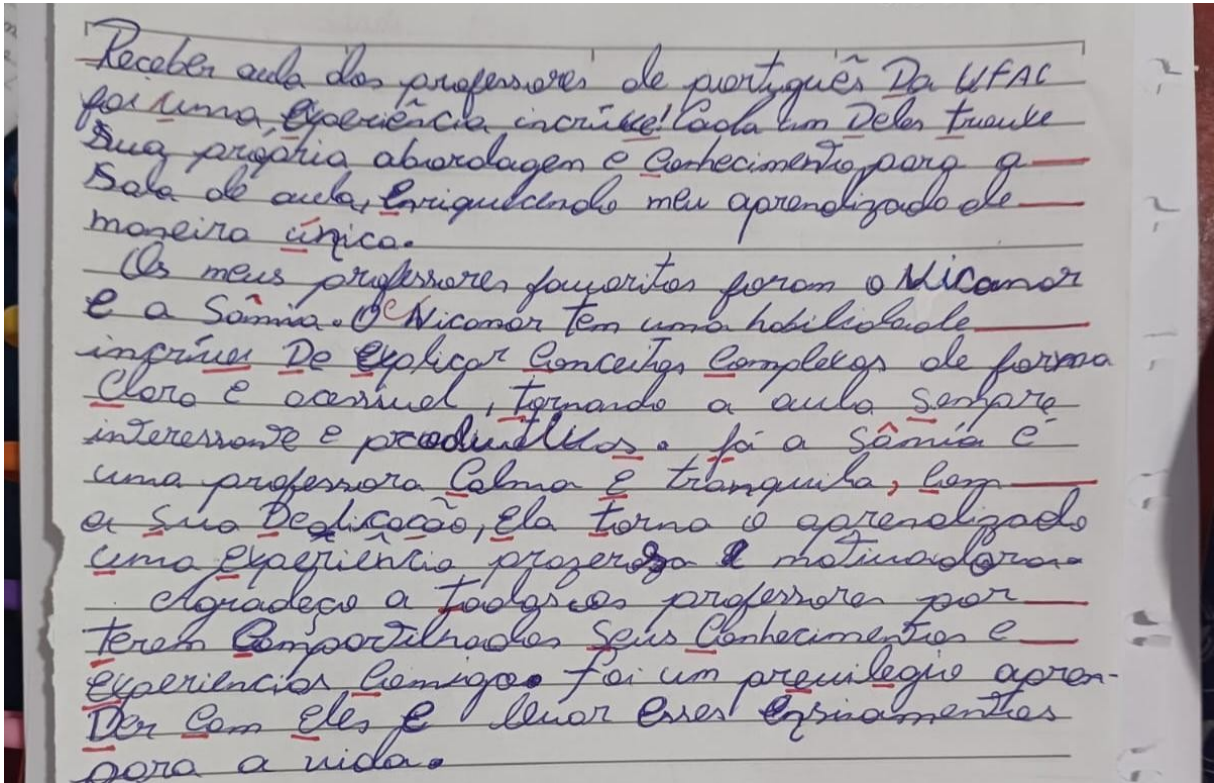 Receber aula dos professores de português Da UFAC
foi uma, Experiência incrível! Cada um Deles trouxe
Sua própria abordagem e Conhecimento, para a
Sala de aula, Enriquecendo meu aprendizado de
maneira única.
Os meus professores favoritos foram o Nicanor
e a Sâmia. O Nicanor Tem uma habilidade
incrível De Explicar Conceitos Complexos de forma
Clara e acessível, Tornando a aula Sempre
interessante e produtivos. Já a Sâmia é
uma professora Calma E tranquila, Com
a Sua Dedicação, Ela torna o aprendizado
uma Experiência prazerosa e motivadora.
Agradeço a Todos os professores por
Terem Compartilhados Seus Conhecimentos e
Experiencias Comigo. Foi um previlegio apren-
Der Com Eles E levar Esses Ensinamentos
para a vida.